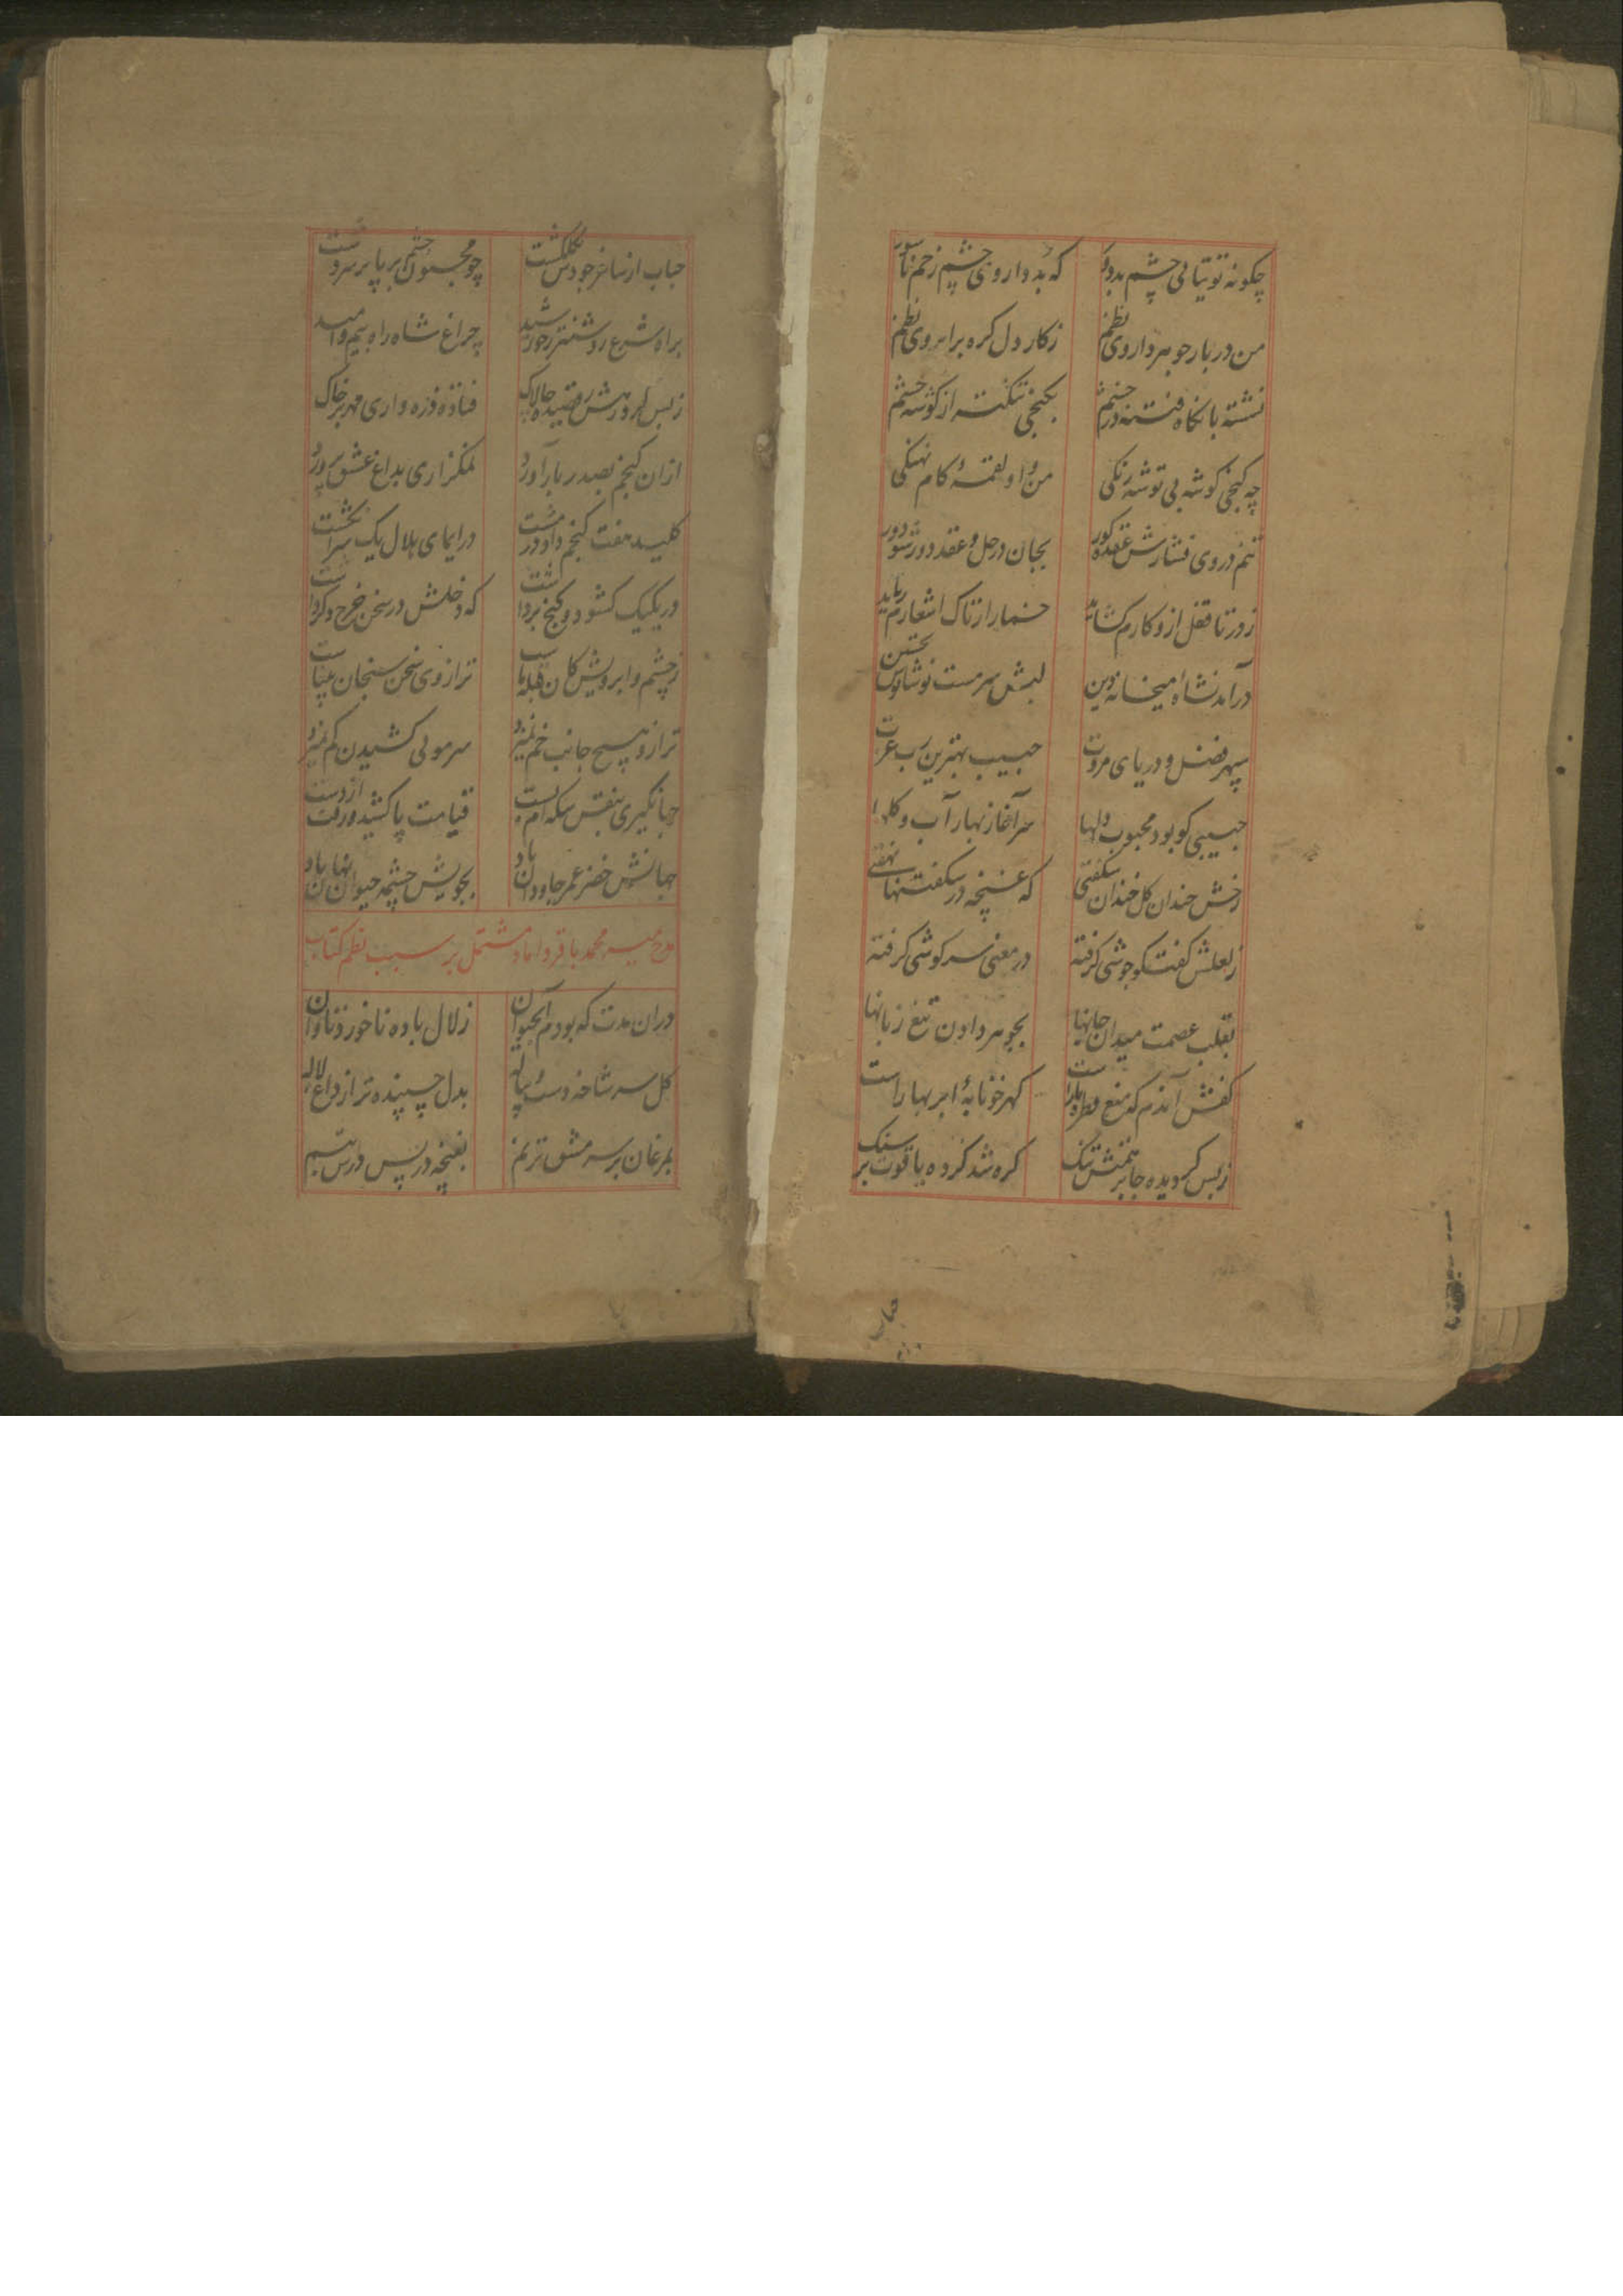 چکونه توتیائی چشم بد دور که بد داروی چشم زخم ناسور
من در بار جوهر داروی نظم زکار دل کره بر ابروی نظم
نشته با نکاه فتنه در چشم بکنجی تنکتر از کوشه چشم
چه کنجی کوشه بی توشه رنکی من و او لقمهٔ کام نهنکی
تنم در وی فشارش عقده کور بجان در حل و عقد دور شد دور
ز در تا قفل از و کارم کشاید خمار از تاک اشعارم رباید
در آمد نشاه میخانه دین لبش سرمست نوشانوش تحسین
سپهر فضل و دریای مروت حبیب بهترین رب عزت
حبیبی کو بود محبوب دلها سر آغاز بهار آب و کلها
رخش خندان کل خندان شکفتی که غنچه در شکفتنها نهفتی
ز لعلش کفت کو جوشی کرفته در معنی سر کوشی کرفته
بقلب عصمت میدان جانها بجوهر دادن تیغ زبانها
کفش آندم که منع قطره باراست کهر خونابهٔ ابر بهار است
ز بس کردیده جا بر همتش تنک کره شد کرده یاقوت بر سنک
حباب
حباب از ساغر جودش بکلکشت چو مجنون چشم ابر پا بر سر دشت
براه شرع روشنتر ز خورشید چراغ شاه راه بیم و امید
ز بس در رهش رقصیده چالاک فتاده ذره واری مهر بر خاک
از ان کنجم بصد دربار آورد نمکزاری بداغ عشق پرورد
کلید هفت کنجم داد در مشت در ایمای هلال یک سر انکشت
در یکیک کشود و کنج برداشت که دخلش در سخن خرج و کرداشت
ز چشم و ابرویش کان قبله ماست ترازوی سخن سنجان
ترازو هیچ جانب خم نمیزد سر موئی کشیدن کم نمیزد
جهانکیری بنقش سکه ام بست قیامت پا کشید و رفت از دست
جهانش خضر عمر جاودان باد بجویش چشمه حیوان نهان باد
مدح میر محمد باقر داماد مشتمل بر سبب نظم کتاب
دران مدت که بودم آبحیوان زلال باده ناخورد ناوان
کل سر شاخه دست پیاله بدل چسپنده تر از داغ لاله
بمرغان بر سر مشق ترنم بغنچه در پس درس تبسم